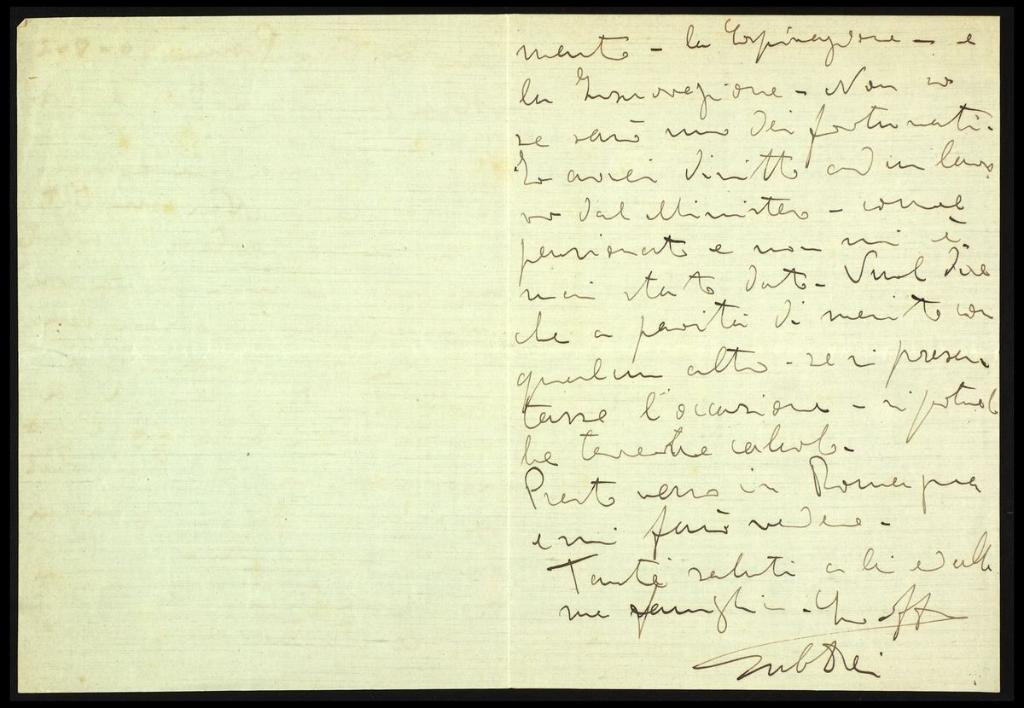 mento - la Espinazione - e
la Insurrezione - Non so
se sarò uno dei fortunati.
Io avrei diritto ad un lavo
ro dal Ministero - come
pensionato e non mi è
mai stato dato - Vuol dire
che a parità di merito con
qualcun altro - se si presen
tasse l'occasione - si potreb
be tenerne calcolo -
Presto verrò in Roma
e mi farò vedere -
Tanti saluti a lei ed alla
sua famiglia - Suo aff